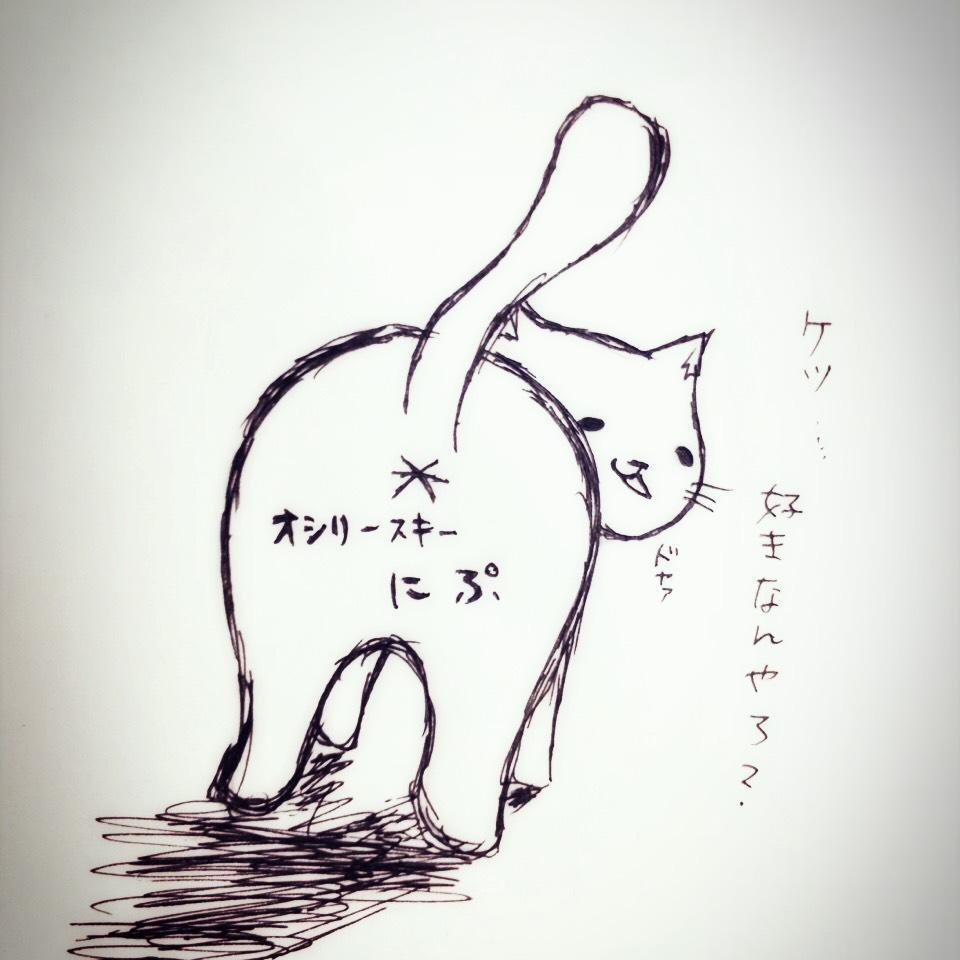 ケツ…
好きなんやろ?
オシリースキー
にぷ
ドヤァ